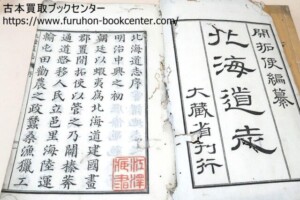 古本買取ブックセンター
https://www.furuhon-bookcenter.com/
開拓使編纂
北海道志
大藏省刊行
北海道志序
明治中興之初
朝廷以蝦夷為北海道建國畫
郡置開拓使以管之乃開榛莽
通道路移人民立邑里海陸運
輸屯田勸農之政蠶桑漁獵工